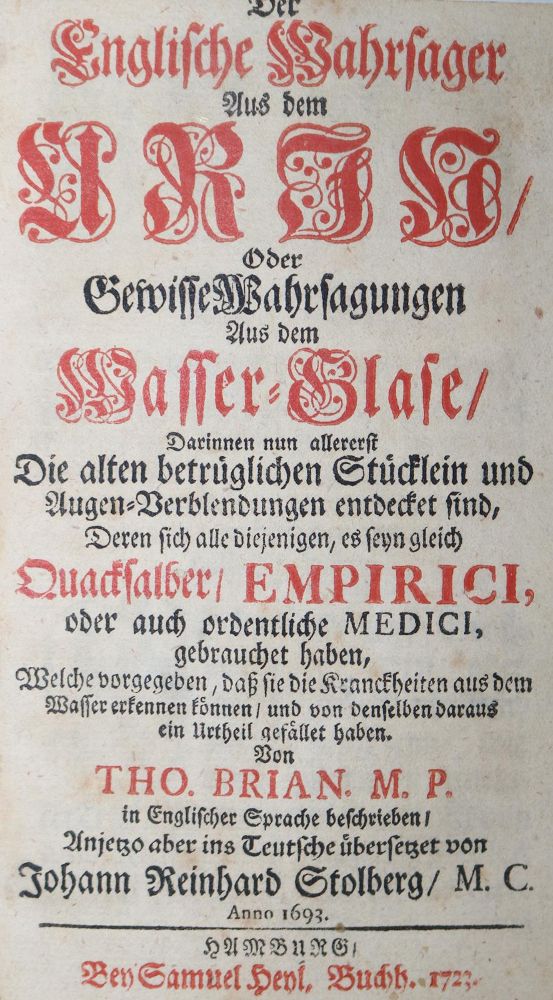 Der
Englische Wahrsager
Aus dem
URIN/
Oder
Gewisse Wahrsagungen
Aus dem
Wasser-Glase/
Darinnen nun allererst
Die alten betrüglichen Stücklein und
Augen-Verblendungen entdecket sind,
Deren sich alle diejenigen, es seyn gleich
Quacksalber/ EMPIRICI,
oder auch ordentliche MEDICI,
gebrauchet haben,
Welche vorgegeben, daß sie die Kranckheiten aus dem
Wasser erkennen können/ und von denselben daraus
ein Urtheil gefället haben.
Von
THO. BRIAN. M. P.
in Englischer Sprache beschrieben/
Anjetzo aber ins Teutsche übersetzet von
Johann Reinhard Stolberg/ M. C.
Anno 1693.
HAMBURG/
Bey Samuel Heyl, Buchh. 1723.